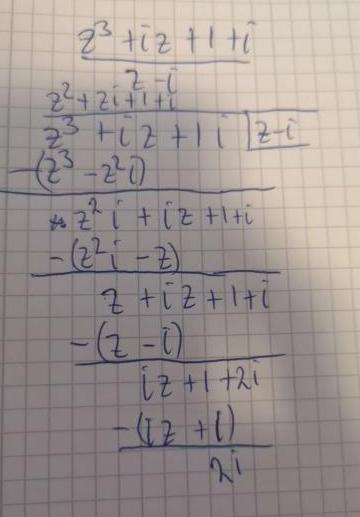 z³ + iz + 1 + i
z - i
z² + zi + 1 + i
z³ + iz + 1 i | z - i
-(z³ - z²i)
z²i + iz + 1 + i
-(z²i - z)
z + iz + 1 + i
-(z - i)
iz + 1 + 2i
-(iz + 1)
2i